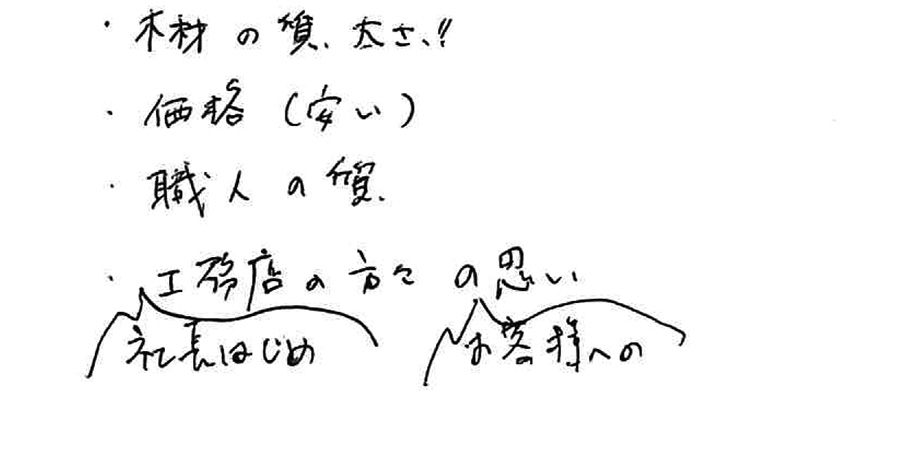 ・木材の質、太さ、!!
・価格（安い）
・職人の質、
・工務店の方々の思い
社長はじめ お客様への